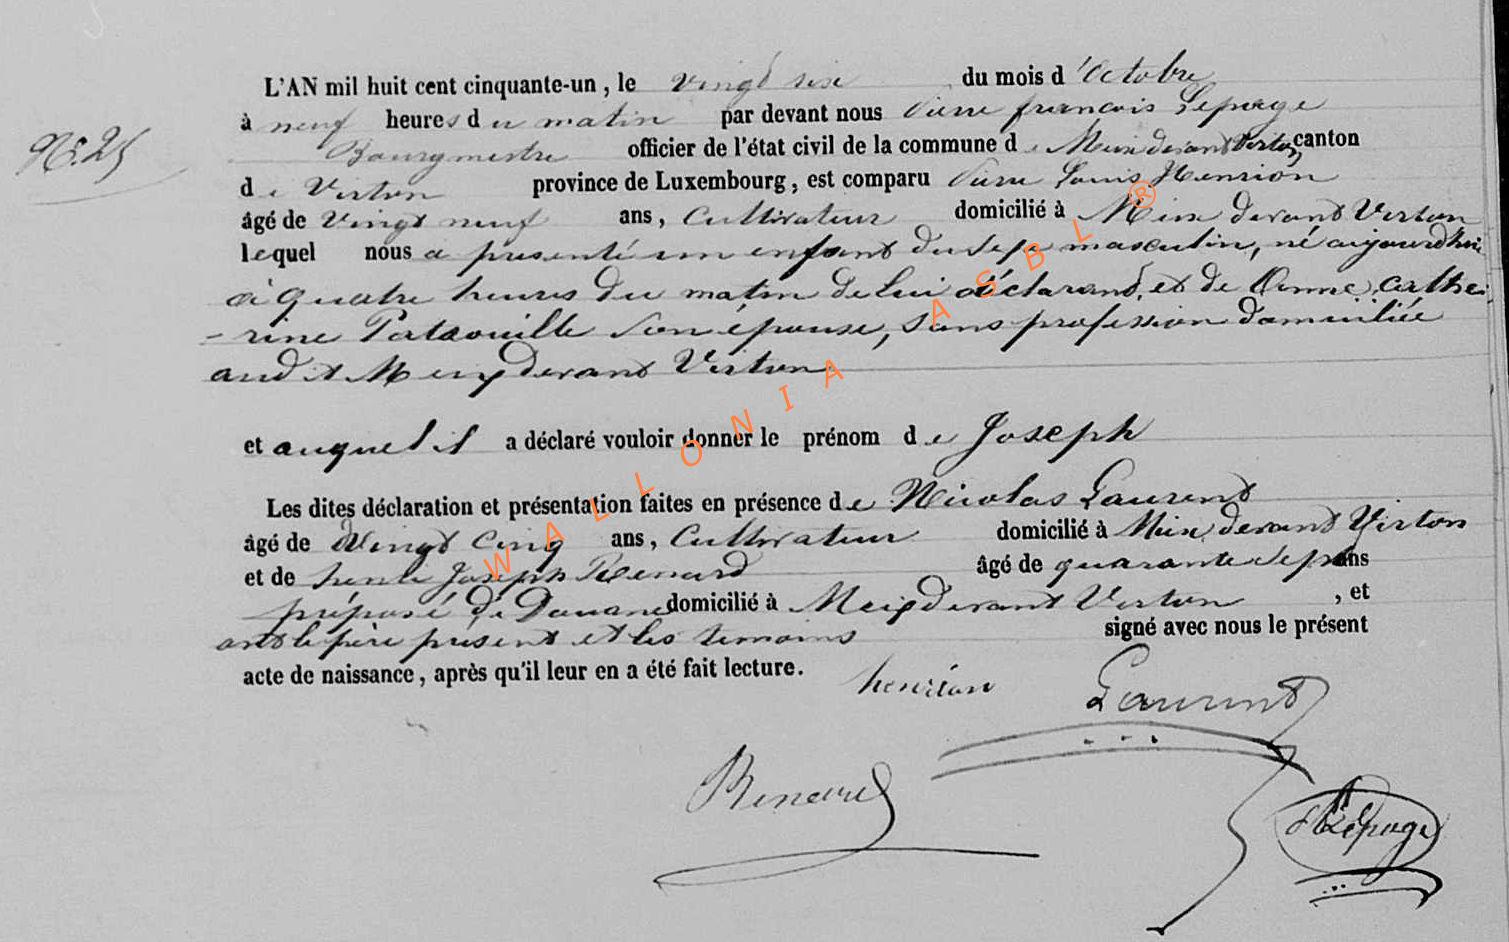 L'AN mil huit cent cinquante-un, le vingt six du mois d'Octobre
à neuf heures du matin par devant nous Pierre françois Lepage
N°. 25
Bourgmestre officier de l'état civil de la commune de Meix devant Virton, canton
de Virton province de Luxembourg, est comparu Pierre Louis Henrion
âgé de Vingt neuf ans, Cultivateur domicilié à Meix devant Virton
lequel nous a presenté un enfant du sexe masculin, né aujourdhui
à quatre heures du matin de lui déclarant, et de Anne, cathe-
-rine Patrouille son épouse, sans profession domiciliée
audit Meix devant Virton
et auquel il a déclaré vouloir donner le prénom de Joseph
Les dites déclaration et présentation faites en présence de Nicolas Laurent
âgé de Vingt cinq ans, Cultivateur domicilié à Meix devant Virton
et de henri Joseph Renard âgé de quarante sept ans
préposé de Douane domicilié à Meix devant Virton, et
ont le père present et les temoins signé avec nous le présent
acte de naissance, après qu'il leur en a été fait lecture.
henrion Laurent
Renard
Lepage
WALLONIA ASBL ®